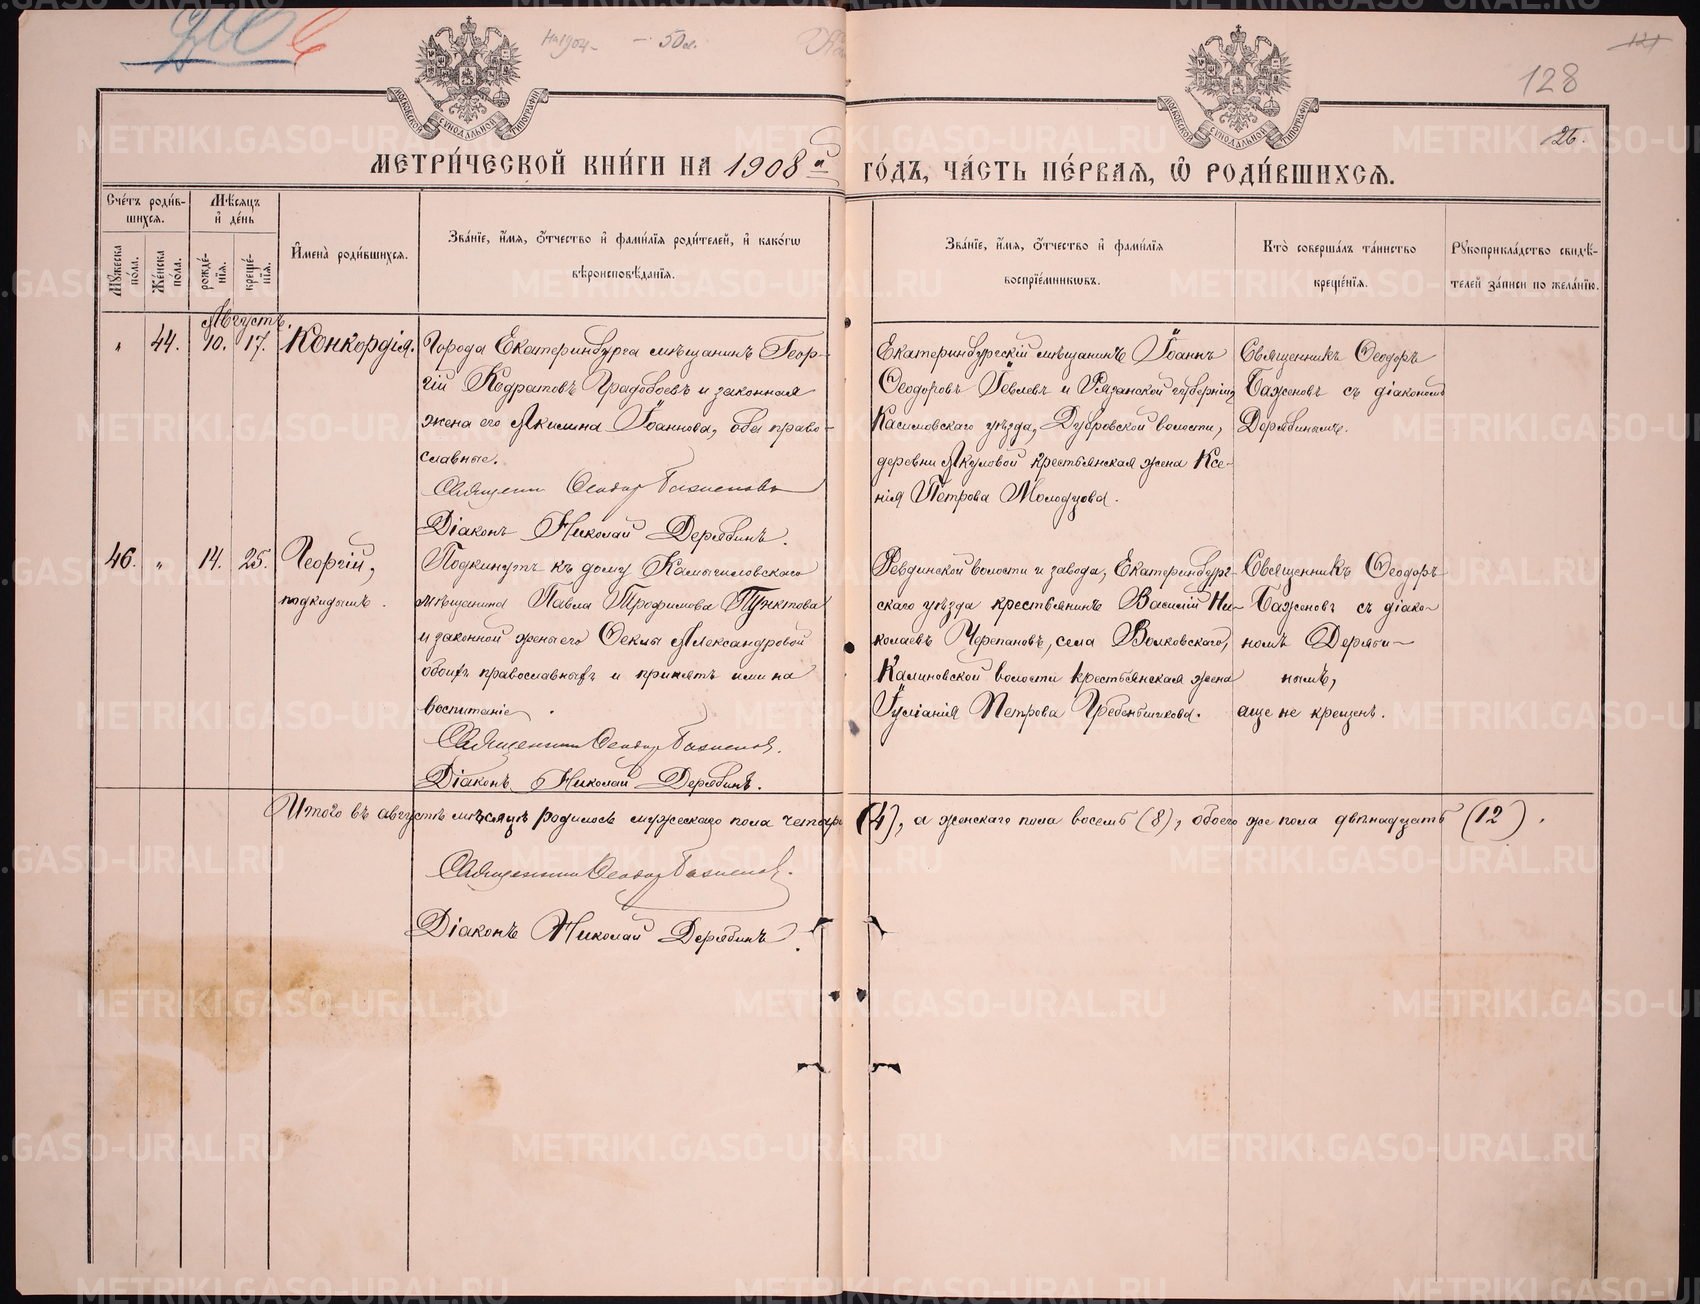 На 1904 - 50 л.
121
128
26.
МЕТРИ́ЧЕСКОЙ КНИ́ГИ НА 1908 й ГО́ДЪ, ЧА́СТЬ ПЕ́РВАЯ, Ѡ РОДИ́ВШИХСЯ.
Сче́тъ роди́в-
шихся.
Мѣ́сяцъ
и҆ де́нь
Мꙋ́жеска по́ла.
Же́нска по́ла.
рожде́-
нїя.
креще́-
нїя.
И҆мена̀ роди́вшихся.
Зва́нїе, и҆́мя, ѻ҆́тчество и҆ фами́лїя роди́телей, и҆ како́гѡ
вѣроисповѣ́данїя.
Зва́нїе, и҆́мя, ѻ҆́тчество и҆ фами́лїя
воспрїе́мникѡвъ.
Кто̀ соверша́лъ та́инство
креще́нїя.
Рꙋкоприкла́дство свидѣ́-
телей за́писи по жела́нїю.
Августъ.
" 44. 10. 17. Конкордія.
Города Екатеринбурга мѣщанинъ Геор-
гій Кодратовъ Градобоевъ и законная
жена его Акилина Іоаннова, оба право-
славные.
Священн Ѳеодоръ Баженовъ
Діаконъ Николай Дерябинъ.
Екатеринбургскій мѣщанинъ Іоаннъ
Ѳеодоровъ Іевлевъ и Рязанской губерніи,
Касимовскаго уѣзда, Дубровской волости,
деревни Акуловой крестьянская жена Ксе-
нія Петрова Молодцова.
Священникъ Ѳеодоръ
Баженовъ съ діакономъ
Дерябинымъ.
46. " 14. 25. Георгій,
подкидышъ.
Подкинутъ къ дому Камышловскаго
мѣщанина Павла Трофимова Пунктова
и законной жены его Ѳеклы Александровой
обоихъ православныхъ и принятъ ими на
воспитаніе.
Священникъ Ѳеодоръ Баженовъ.
Діаконъ Николай Дерябинъ.
Ревдинской волости и завода, Екатеринбург-
скаго уѣзда крестьянинъ Василій Ни-
колаевъ Черепановъ, села Волковскаго,
Калиновской волости крестьянская жена
Іуліанія Петрова Гребеньщикова.
Священникъ Ѳеодоръ
Баженовъ съ діако-
номъ Деряби-
нымъ,
аще не крещенъ.
Итого въ августѣ мѣсяцѣ родилось мужескаго пола четыре (4), а женскаго пола восемь (8), обоего же пола двѣнадцать (12).
Священникъ Ѳеодоръ Баженовъ.
Діаконъ Николай Дерябинъ.
METRIKI.GASO-URAL.RU